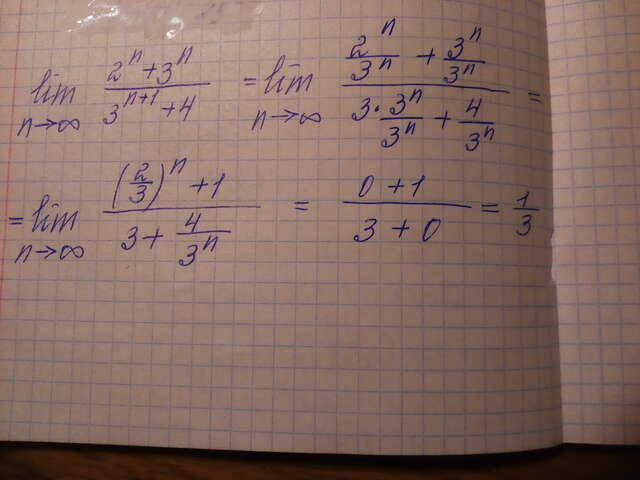 lim n→∞ (2^n + 3^n)/(3^(n+1) + 4) = lim n→∞ (2^n/3^n + 3^n/3^n)/(3·3^n/3^n + 4/3^n) =
= lim n→∞ ((2/3)^n + 1)/(3 + 4/3^n) = (0 + 1)/(3 + 0) = 1/3